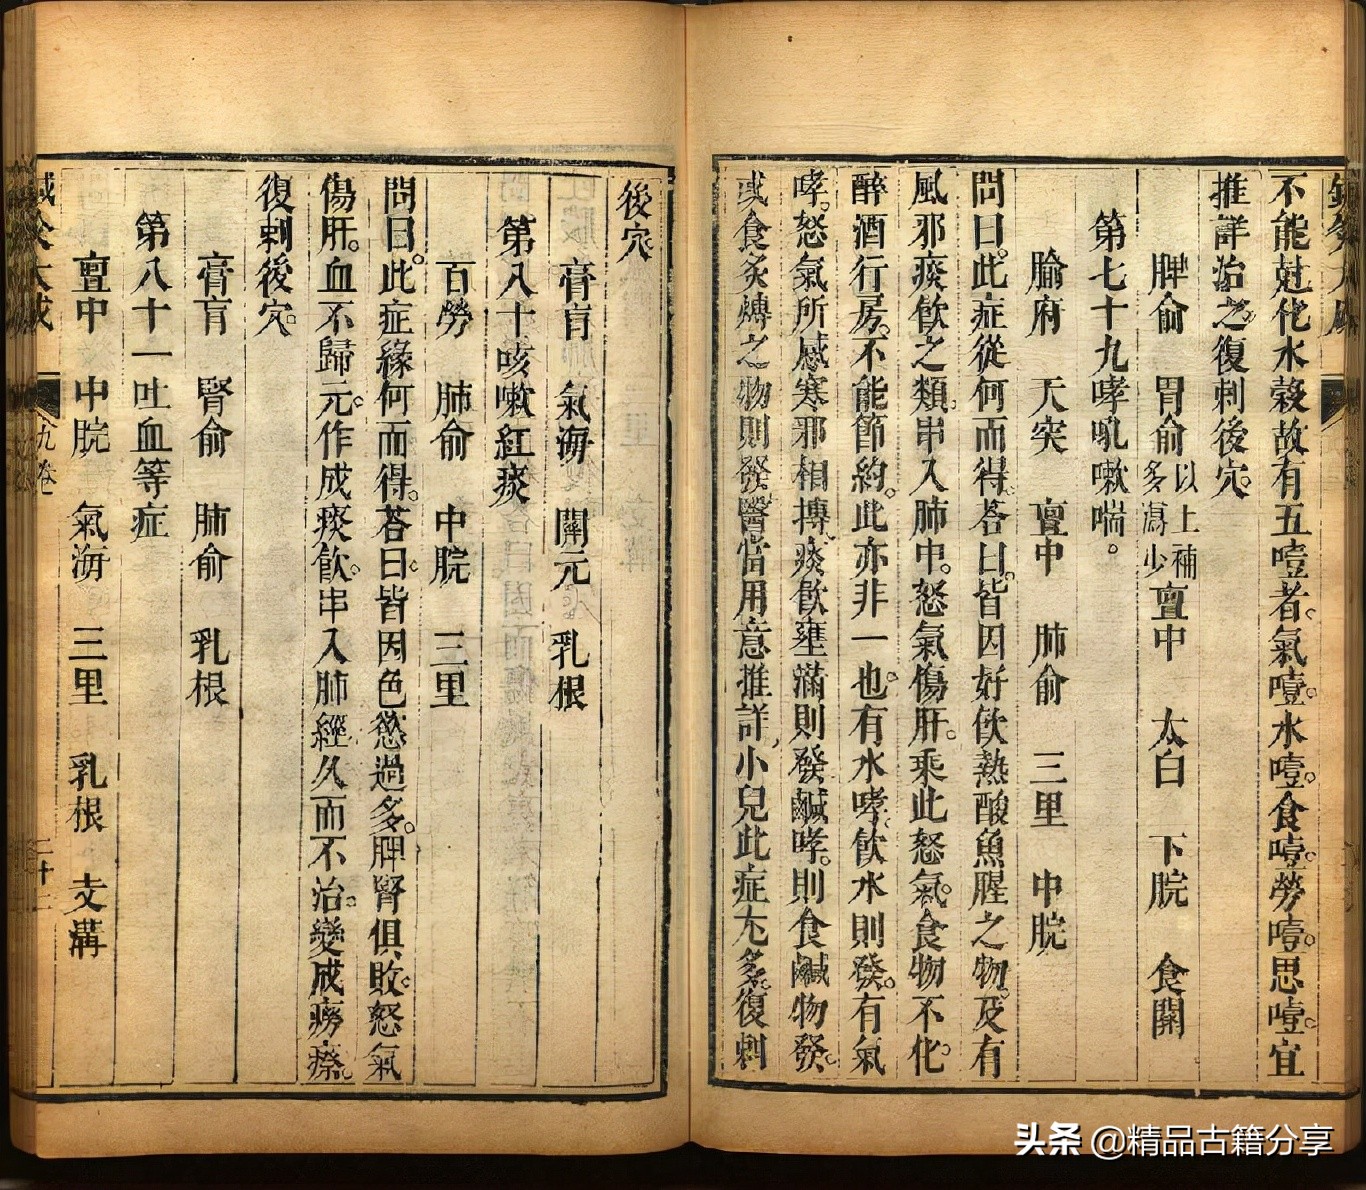 不能尅化水穀故有五噎者氣噎水噎食噎勞噎思噎宜
推詳治之復刺後穴
脾俞 胃俞 以上補多瀉少 亶中 太白 下脘 食關
第七十九哮吼嗽喘
腧府 天突 亶中 肺俞 三里 中脘
問曰此症從何而得答曰皆因好飲熱酸魚腥之物及有
風邪痰飲之類串入肺中怒氣傷肝乘此怒氣食物不化
醉酒行房不能節約此亦非一也有水哮飲水則發有氣
哮怒氣所感寒邪相摶痰飲壅滿則發鹹哮則食鹹物發
或食炙煿之物則發醫當用意推詳小兒此症尤多復刺
後穴
膏肓 氣海 關元 乳根
第八十咳嗽紅痰
百勞 肺俞 中脘 三里
問曰此症緣何而得答曰皆因色慾過多脾腎俱敗怒氣
傷肝血不歸元作成痰飲串入肺經久而不治變成癆瘵
復刺後穴
膏肓 腎俞 肺俞 乳根
第八十一吐血等症
亶中 中脘 氣海 三里 乳根 支溝
鍼灸大成 九卷
头条 @精品古籍分享